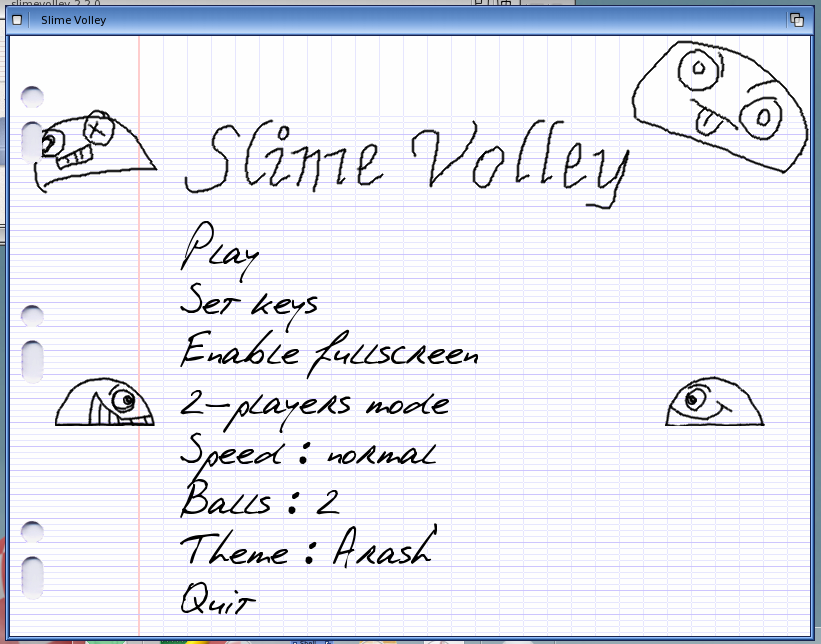 slimevolley 2.2.0
Slime Volley
Slime Volley
Play
Set keys
Enable fullscreen
2-players mode
Speed : normal
Balls : 2
Theme : Arash
Quit
Shell